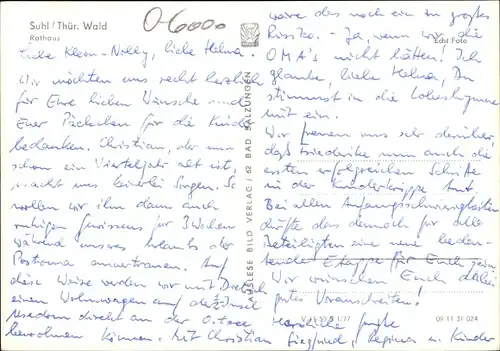 Suhl / Thür. Wald
Rathaus
0-6000
Echt Foto
Liebe Klein-Nelly, liebe Helma.
Wir möchten uns recht herzlich
für Eure lieben Wünsche und
Euer Päckchen für die Kinder
bedanken. Christian, der nun
schon ein Vierteljahr alt ist,
macht uns keinerlei Sorgen. So
wollen wir ihn dann auch
ruhigen Gewissens für 3 Wochen
während unseres Urlaubs der
Postoma anvertrauen. Auf
diese Weise werden wir mit
einen Wohnwagen auf der Insel
Usedom direkt an der Ostsee
bewohnen können. Mit Christian
wäre das noch ein zu großes
Risiko. - Ja, wenn wir die
OMA's nicht hätten! Ich
glaube, liebe Helma, Du
stimmst in die Lobeshymne
mit ein.
Wir freuen uns sehr darüber,
daß Friederike nun auch die
ersten erfolgreichen Schritte
in der Kinderkrippe tut.
Bei allen Anfangsschwierigkeiten
dürfte das dennoch für alle
Beteiligten eine neue bedeu-
tende Etappe für Euch sein.
Wir wünschen Euch dabei
gutes Voranschreiten!
Herzliche Grüße
Siegfried, Regina u. Kinder
AUSLESE BILD VERLAG / 62 BAD SALZUNGEN
09 11 31 024